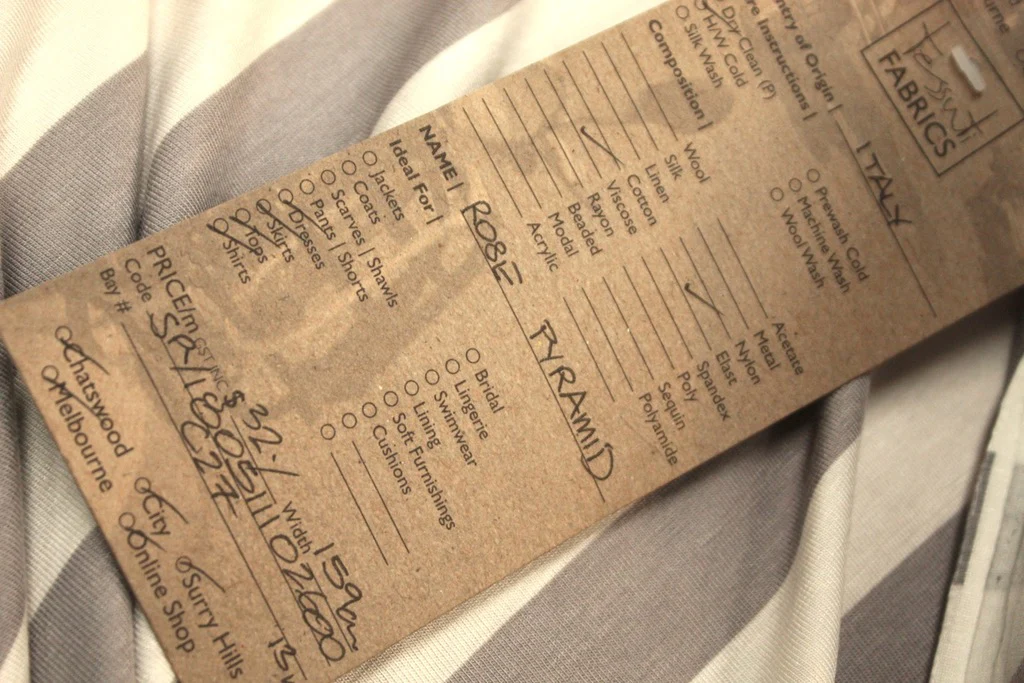 Tessuti
FABRICS
ITALY
Prewash Cold
Machine Wash
Wool Wash
Dry Clean (P)
H/W Cold
Silk Wash
Composition |
Wool
Silk
Linen
Cotton
✓ Viscose
Rayon
Beaded
Modal
Acrylic
Acetate
Metal
Nylon
✓ Elast
Spandex
Poly
Sequin
Polyamide
NAME | ROBE PYRAMID
Ideal For |
Jackets
Coats
Scarves | Shawls
Pants | Shorts
Dresses
Skirts
Tops
Shirts
Bridal
Lingerie
Swimwear
Lining
Soft Furnishings
Cushions
PRICE/m GST INC $ 32.- Width 159cm
Code SPY1800511102600
Bay # C27
Chatswood City Surry Hills
Melbourne Online Shop